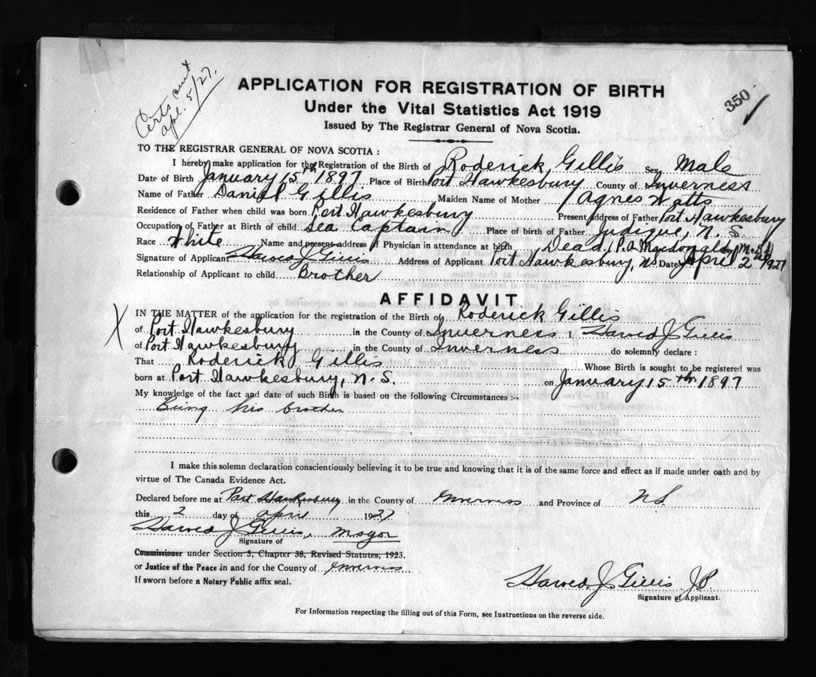 Certs sent
apl. 5/27.
350
APPLICATION FOR REGISTRATION OF BIRTH
Under the Vital Statistics Act 1919
Issued by The Registrar General of Nova Scotia.
TO THE REGISTRAR GENERAL OF NOVA SCOTIA :
I hereby make application for the Registration of the Birth of Roderick Gillis Sex Male
Date of Birth January 15th 1897 Place of Birth Port Hawkesbury County of Inverness
Name of Father Daniel Gillis Maiden Name of Mother Agnes Watts
Residence of Father when child was born Port Hawkesbury Present Address of Father Port Hawkesbury
Occupation of Father at Birth of child Sea Captain Place of birth of Father Judique, N. S.
Race White Name and present address of Physician in attendance at birth Dead, P.A. Macdonald, M.D.
Signature of Applicant J Gillis Address of Applicant Port Hawkesbury, NS Date April 2nd 1927
Relationship of Applicant to child Brother
AFFIDAVIT
X
IN THE MATTER of the application for the registration of the Birth of Roderick Gillis
of Port Hawkesbury in the County of Inverness I, J Gillis
of Port Hawkesbury in the County of Inverness do solemnly declare :
That Roderick Gillis Whose Birth is sought to be registered was
born at Port Hawkesbury, N. S. on January 15th 1897
My knowledge of the fact and date of such Birth is based on the following Circumstances :-
Being his brother
I make this solemn declaration conscientiously believing it to be true and knowing that it is of the same force and effect as if made under oath and by
virtue of The Canada Evidence Act.
Declared before me at Port Hawkesbury in the County of Inverness and Province of NS
this 2 day of April 1927
J Gillis, Mayor
Signature of
Commissioner under Section 5, Chapter 38, Revised Statutes, 1923.
or Justice of the Peace in and for the County of Inverness
If sworn before a Notary Public affix seal.
J Gillis J.P.
Signature of Applicant.
For Information respecting the filling out of this Form, see Instructions on the reverse side.